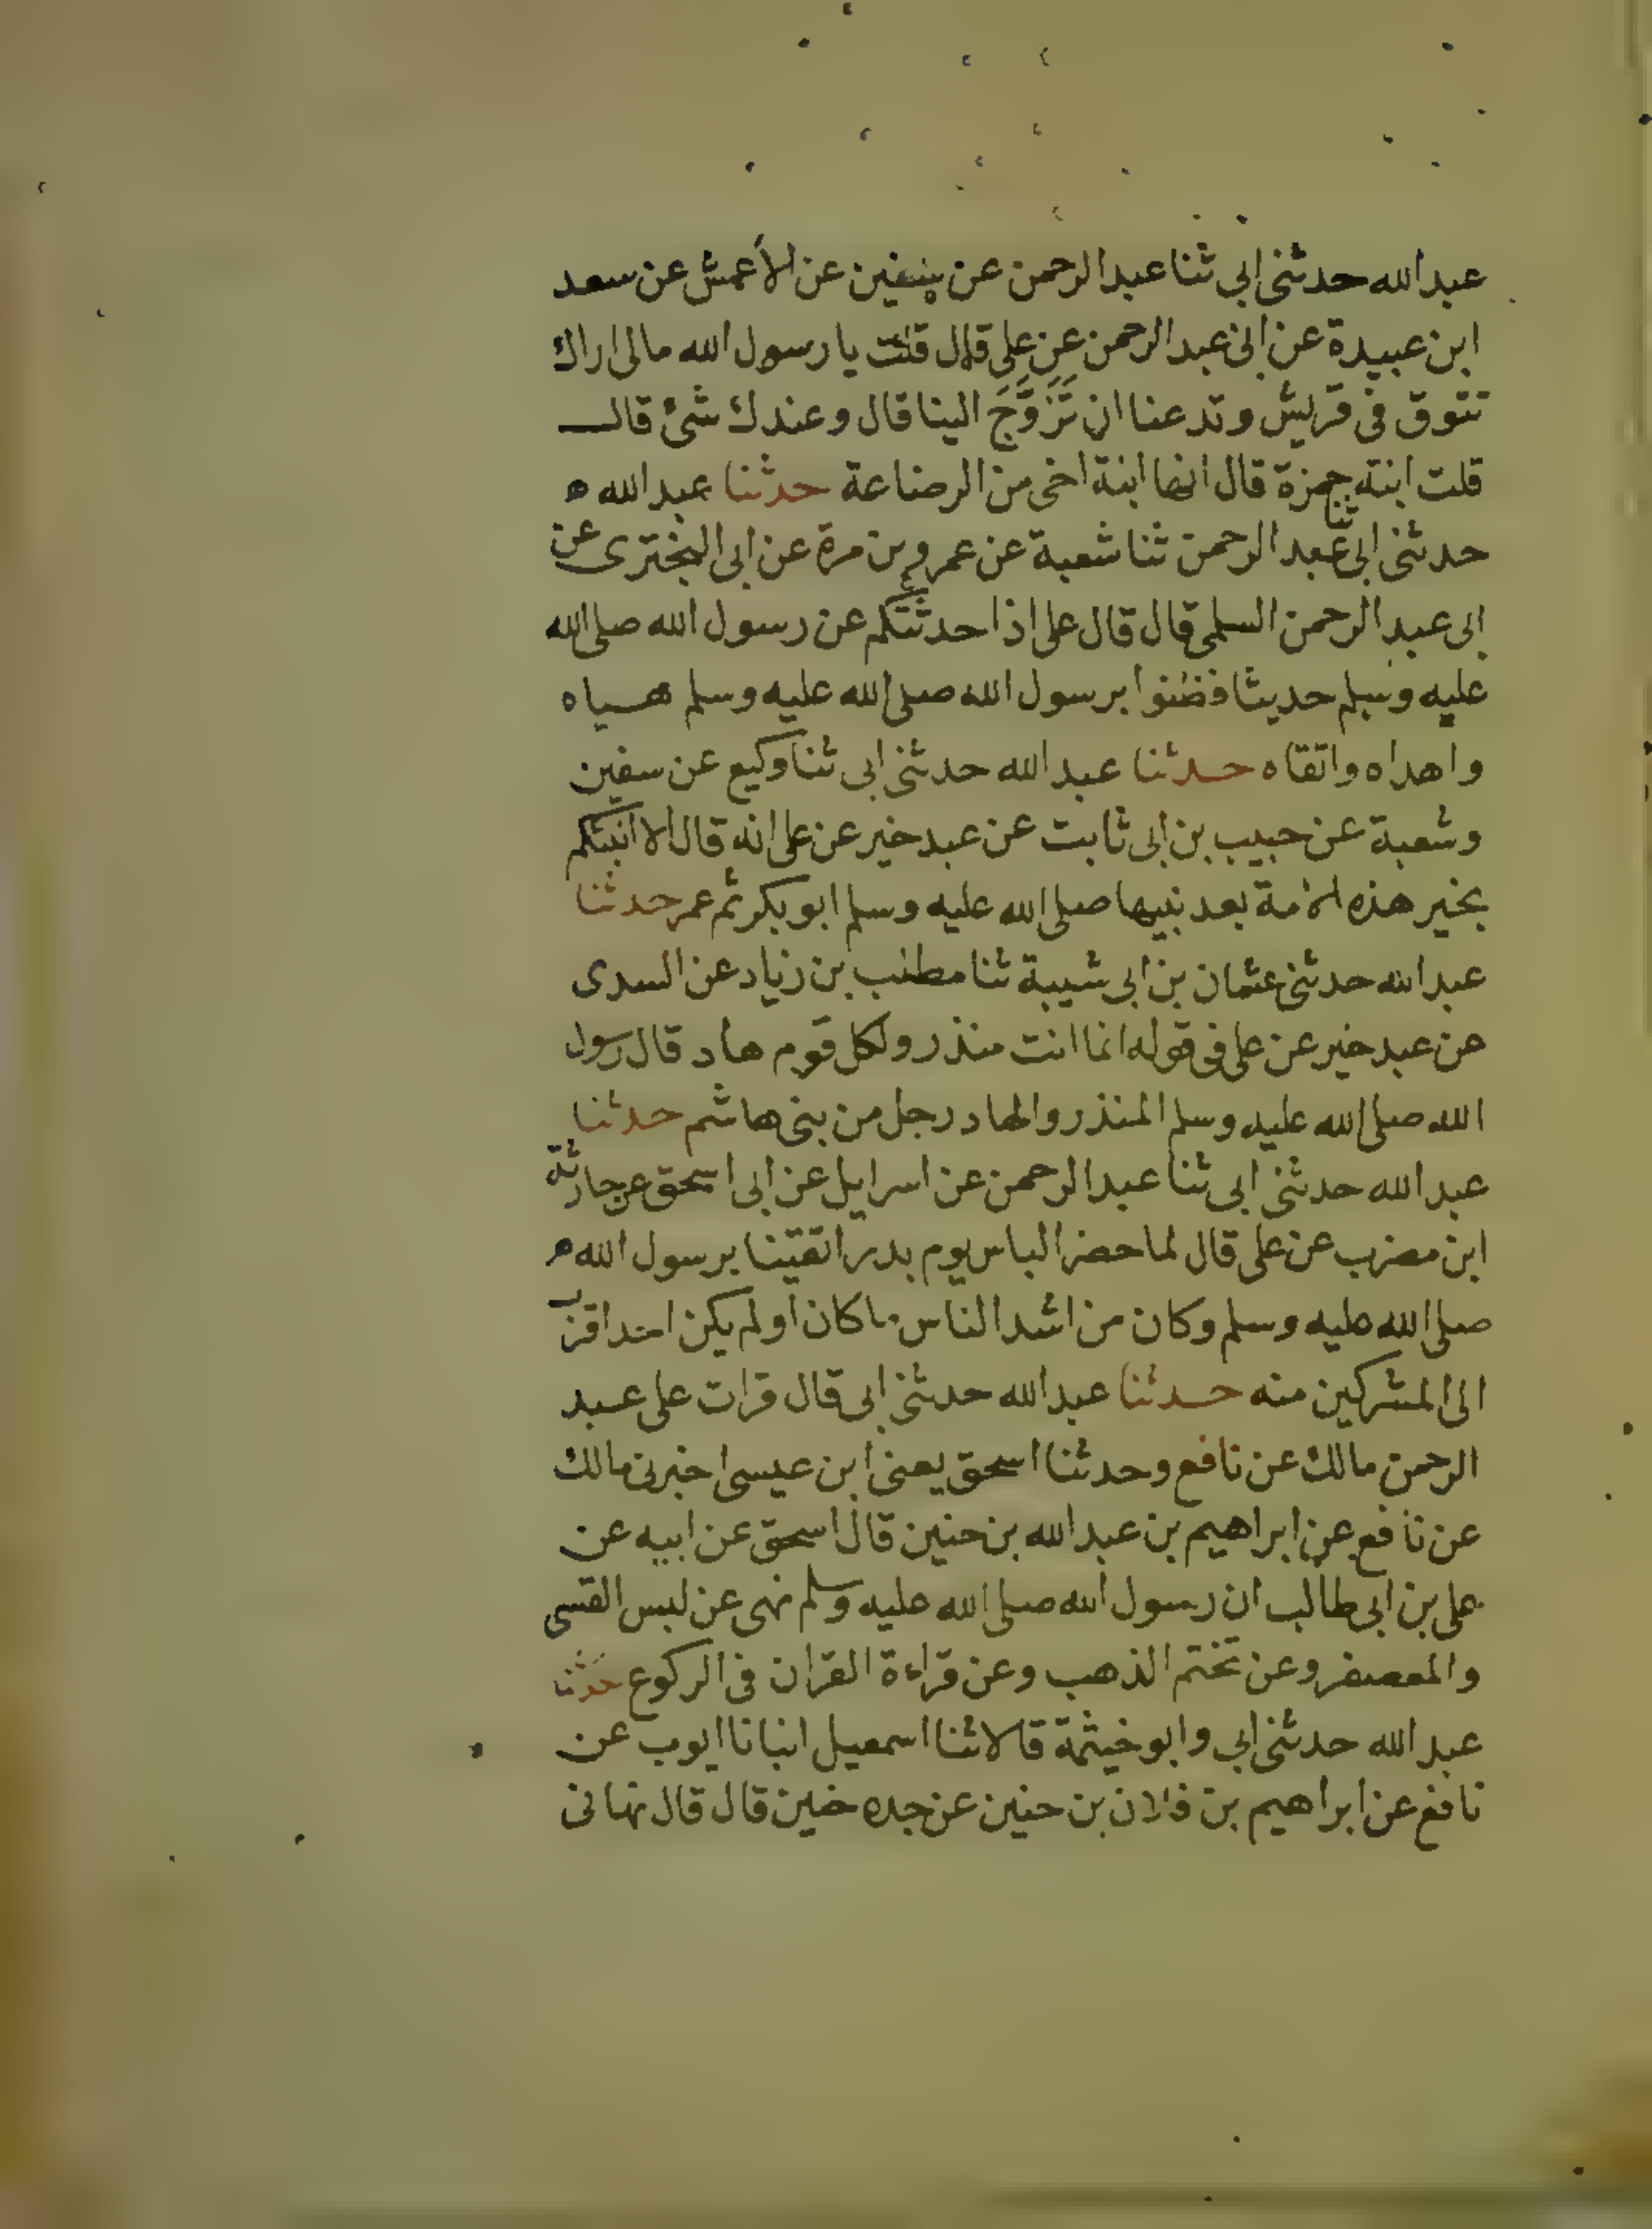 عبد الله حدثنى ابى ثنا عبد الرحمن عن سفين عن الأعمش عن سعد
ابن عبيدة عن ابى عبد الرحمن عن على قال قلت يا رسول الله مالى اراك
تتوق فى قريش وتدعنا ان تَزَوَّجَ الينا قال وعندك شئ قال
قلت ابنة حمزة قال انها ابنة اخى من الرضاعة حدثنا عبد الله ه
حدثنى ابى ثنا عبد الرحمن ثنا شعبة عن عمرو بن مرة عن ابى البخترى عن
ابى عبد الرحمن السلمى قال قال على اذا حدثتكم عن رسول الله صلى الله
عليه وسلم حديثا فظنوا برسول الله صلى الله عليه وسلم هياه
واهداه واتقاه حدثنا عبد الله حدثنى ابى ثنا وكيع عن سفين
وشعبة عن حبيب بن ابى ثابت عن عبد خير عن على انه قال الا انبئكم
بخير هذه الامة بعد نبيها صلى الله عليه وسلم ابو بكر ثم عمر حدثنا
عبد الله حدثنى عثمان بن ابى شيبة ثنا مطلب بن زياد عن السدى
عن عبد خير عن على فى قوله انما انت منذر ولكل قوم هاد قال رسول
الله صلى الله عليه وسلم المنذر والهاد رجل من بنى هاشم حدثنا
عبد الله حدثنى ابى ثنا عبد الرحمن عن اسرايل عن ابى اسحق عن حارثة
ابن مضرب عن على قال لما حضر الباس يوم بدر اتقينا برسول الله ه
صلى الله عليه وسلم وكان من اشد الناس ما كان او لم يكن احد اقرب
الى المشركين منه حدثنا عبد الله حدثنى ابى قال قرات على عبد
الرحمن مالك عن نافع وحدثنا اسحق يعنى ابن عيسى اخبرنى مالك
عن نافع عن ابراهيم بن عبد الله بن حنين قال اسحق عن ابيه عن
على بن ابى طالب ان رسول الله صلى الله عليه وسلم نهى عن لبس القسى
والمعصفر وعن تختم الذهب وعن قراءة القران فى الركوع حدثنا
عبد الله حدثنى ابى وابو خيثمة قالا ثنا اسمعيل انبانا ايوب عن
نافع عن ابراهيم بن فلان بن حنين عن جده حنين قال قال نهانى